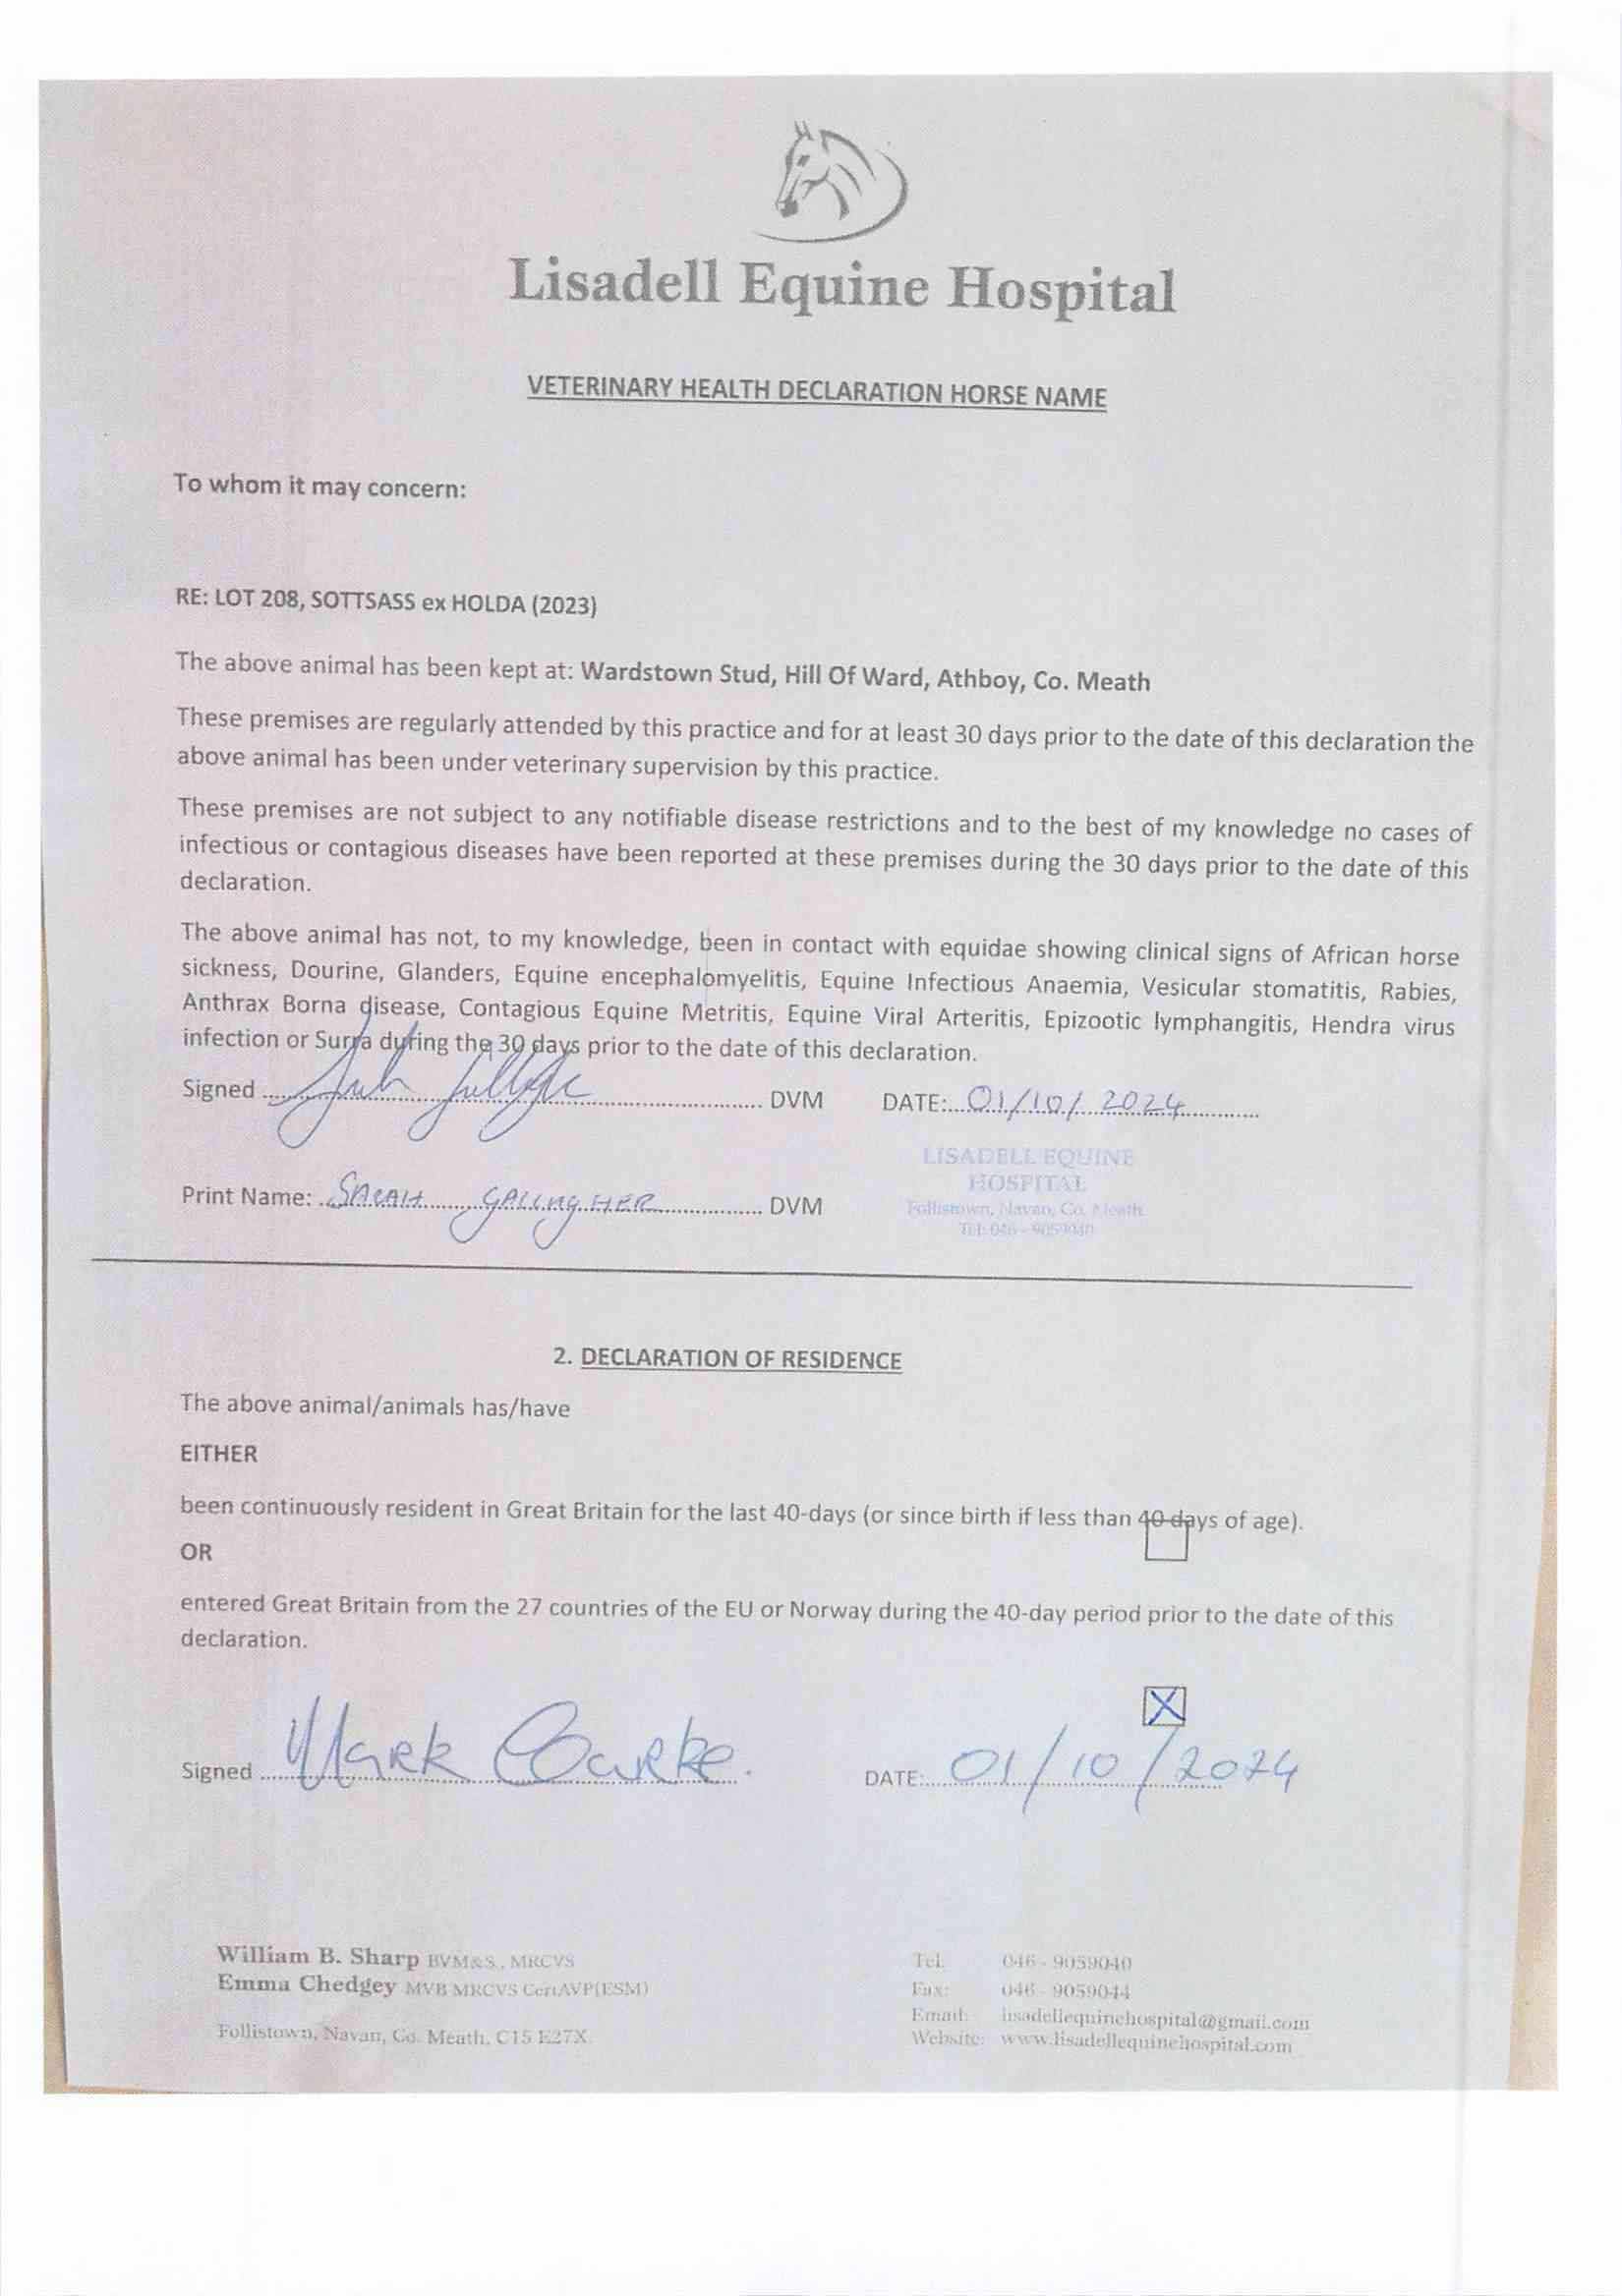 Lisadell Equine Hospital
VETERINARY HEALTH DECLARATION HORSE NAME
To whom it may concern:
RE: LOT 208, SOTTSASS ex HOLDA (2023)
The above animal has been kept at: Wardstown Stud, Hill Of Ward, Athboy, Co. Meath
These premises are regularly attended by this practice and for at least 30 days prior to the date of this declaration the
above animal has been under veterinary supervision by this practice.
These premises are not subject to any notifiable disease restrictions and to the best of my knowledge no cases of
infectious or contagious diseases have been reported at these premises during the 30 days prior to the date of this
declaration.
The above animal has not, to my knowledge, been in contact with equidae showing clinical signs of African horse
sickness, Dourine, Glanders, Equine encephalomyelitis, Equine Infectious Anaemia, Vesicular stomatitis, Rabies,
Anthrax Borna disease, Contagious Equine Metritis, Equine Viral Arteritis, Epizootic lymphangitis, Hendra virus
infection or Surra during the 30 days prior to the date of this declaration.
Signed DVM DATE: 01/10/2024
LISADELL EQUINE
HOSPITAL
Follistown, Navan, Co. Meath
Tel: 046 - 9059040
Print Name: SARAH GALLAGHER DVM
2. DECLARATION OF RESIDENCE
The above animal/animals has/have
EITHER
been continuously resident in Great Britain for the last 40-days (or since birth if less than 40 days of age).
OR
entered Great Britain from the 27 countries of the EU or Norway during the 40-day period prior to the date of this
declaration.
X
Signed Mark DATE: 01/10/2024
William B. Sharp BVM&S., MRCVS
Emma Chedgey MVB MRCVS CertAVP(ESM)
Follistown, Navan, Co. Meath, C15 E27X
Tel: 046 - 9059040
Fax: 046 - 9059044
Email: lisadellequinehospital@gmail.com
Website: www.lisadellequinehospital.com